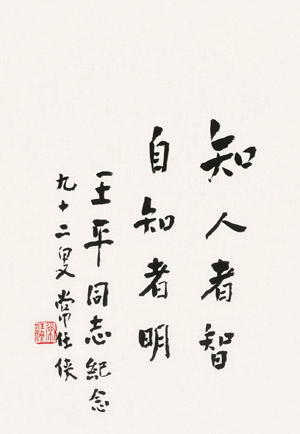 知人者智
自知者明
王平同志紀念
九十二叟 常任俠